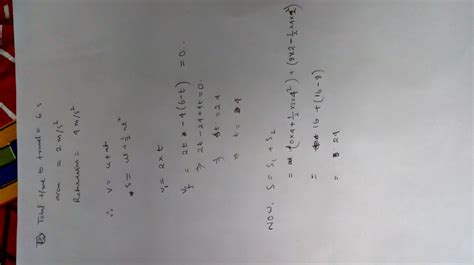 Total time to travel = 6 s
accn = 2 m/s²
Retardation = 4 m/s²
∴ v = u + at
S = ut + ½ at²
v₁ = 2 x t
v_f = 2t - 4 (6-t) = 0.
⇒ 2t - 24 + 4t = 0.
⇒ 6t = 24
⇒ t = 4
NOW, S = S₁ + S₂
= (0x4 + ½ x2x4²) + (8x2 - ½ x4x2²)
= 16 + (16-8)
= 24